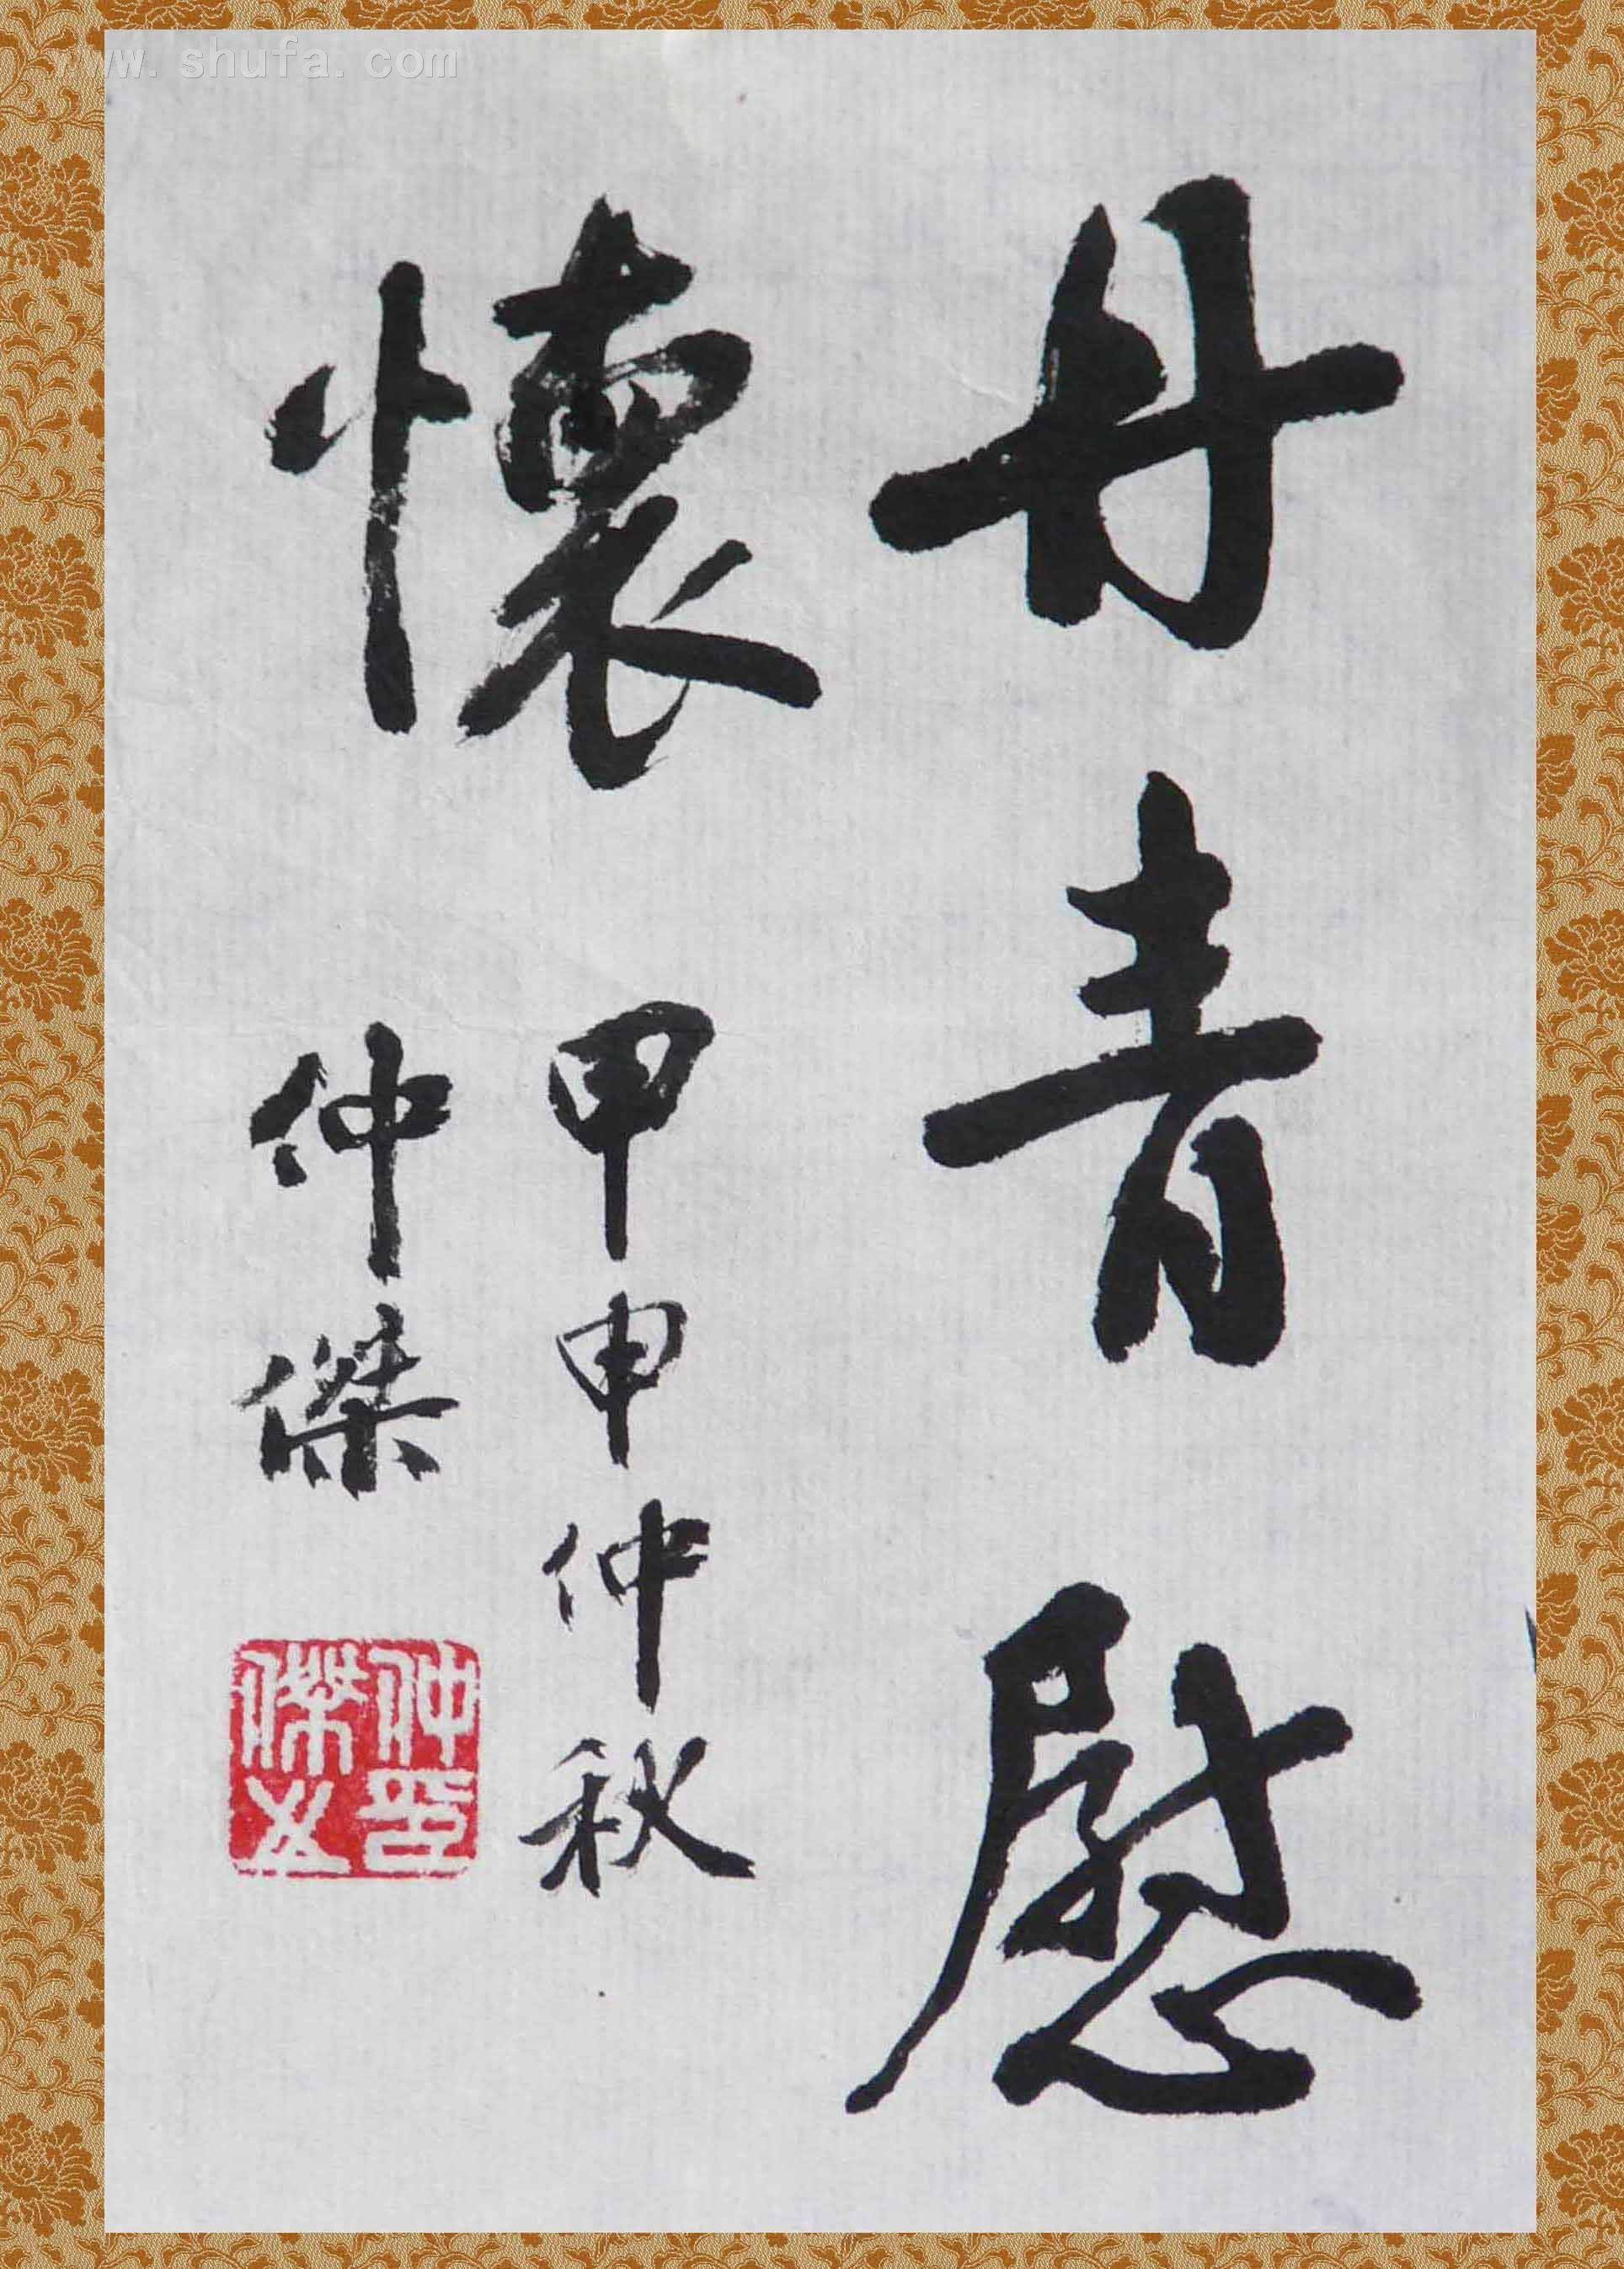 丹青慰
懷
甲申仲秋
仲傑
仲傑
www.shufa.com